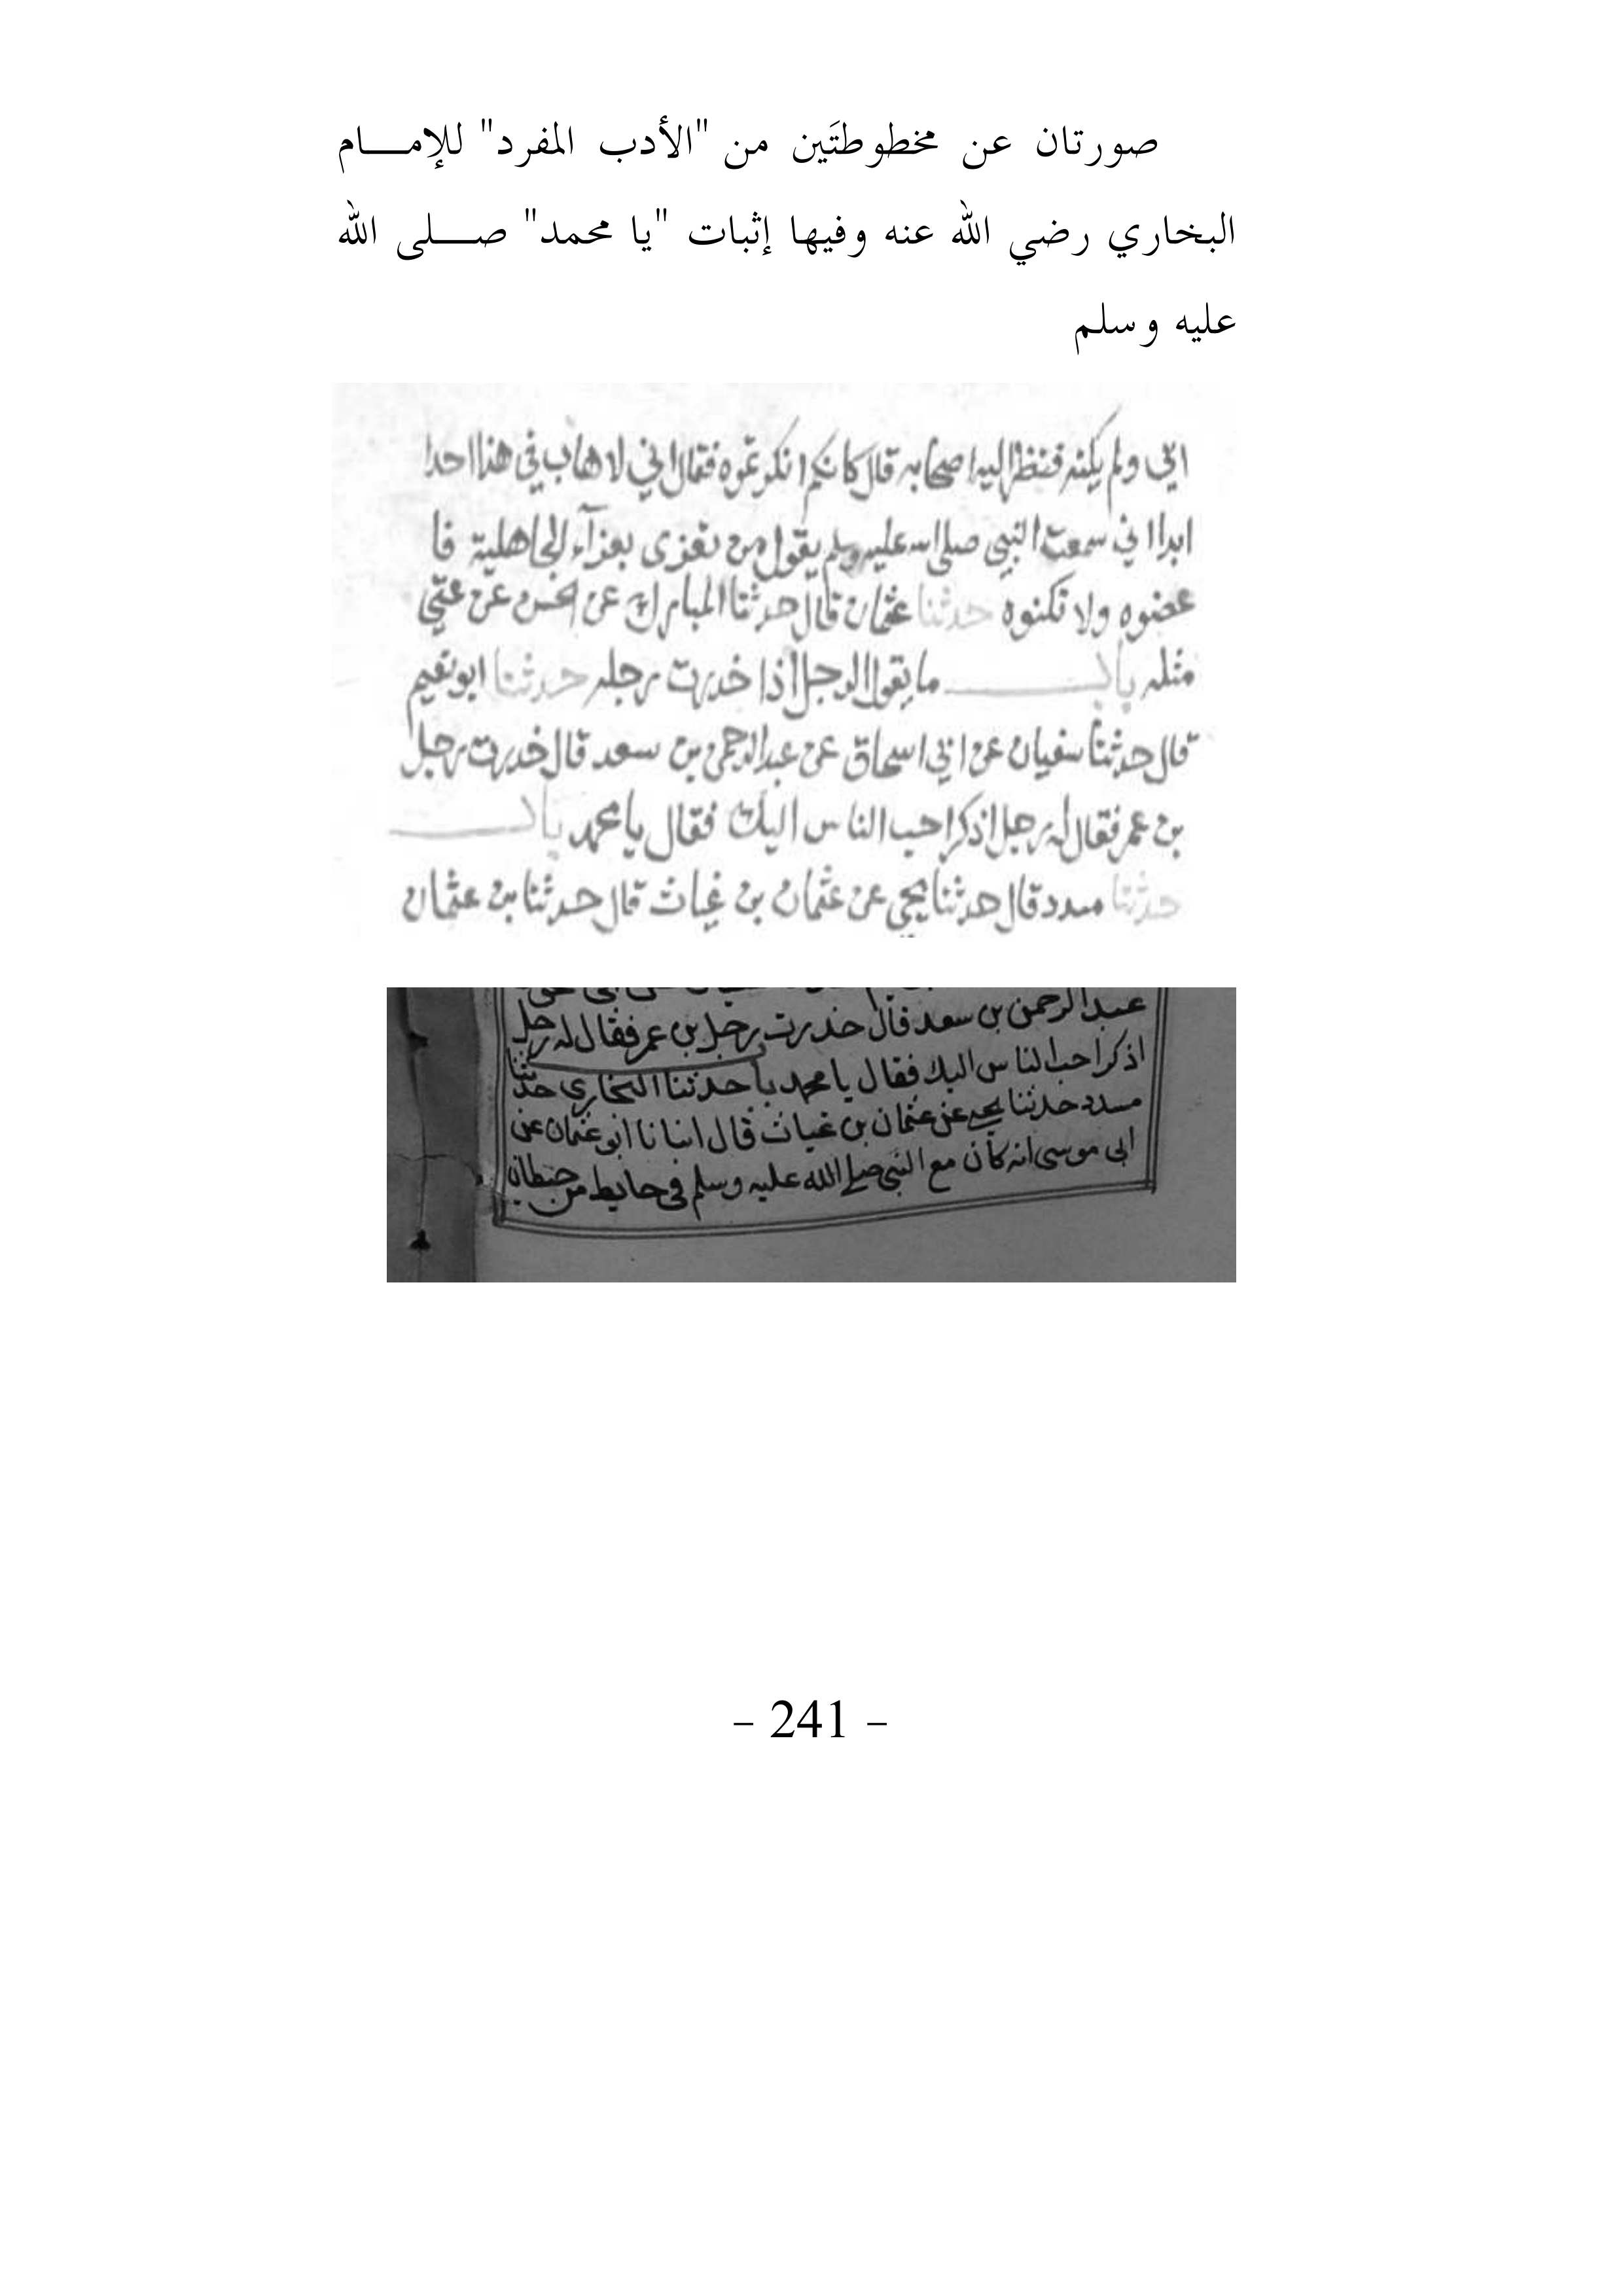 صورتان عن مخطوطتَين من "الأدب المفرد" للإمــام
البخاري رضي الله عنه وفيها إثبات "يا محمد" صــلى الله
عليه وسلم
ابي ولم يكنه فنظر اليه اصحابه قال كانكم انكرتموه فقال اني لا هاب في هذا احدا
ابدا اني سمعت النبي صلى الله عليه وسلم يقول من تعزى بعزآء الجاهلية فا
عضوه ولا تكنوه حدثنا عثمان قال حدثنا المبارك عن الحسن عن عتي
مثله باب ما يقول الرجل اذا خدرت رجله حدثنا ابو نعيم
قال حدثنا سفيان عن ابي اسحاق عن عبد الرحمن بن سعد قال خدرت رجل
بن عمر فقال له رجل اذكر احب الناس اليك فقال يا محمد باب
حدثنا مسدد قال حدثنا يحيى عن عثمان بن غياث قال حدثنا بن عثمان
عبد الرحمن بن سعد قال خدرت رجل بن عمر فقال له رجل
اذكر احب الناس اليك فقال يا محمد با حدثنا البخاري حدثنا
مسدد حدثنا يحيى عن عثمان بن غياث قال انبانا ابو عثمان عن
ابى موسى انه كان مع النبي صلى الله عليه وسلم فى حايط من حيطان
- 241 -